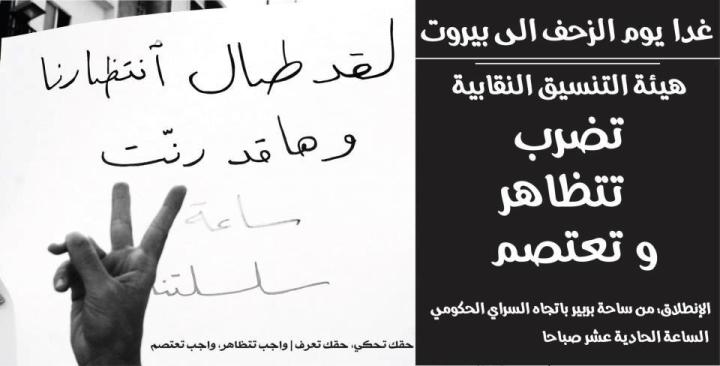 غدا يوم الزحف الى بيروت
هيئة التنسيق النقابية
تضرب
تتظاهر
و تعتصم
الإنطلاق، من ساحة بربير باتجاه السراي الحكومي
الساعة الحادية عشر صباحا
لقد طال أنتظارنا
وها قد رنّت
ساعة
سلسلتنا
حقك تحكي، حقك تعرف | واجب تتظاهر، واجب تعتصم